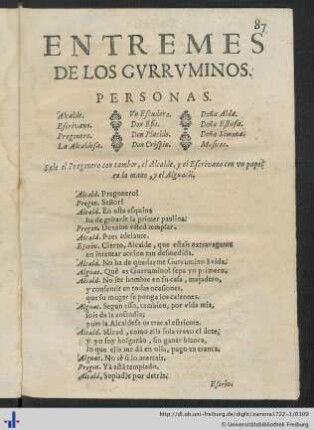 87
ENTREMES
DE LOS GVRRVMINOS.
PERSONAS.
Alcalde. Vn Escudero. Doña Alda.
Escrivano. Don Eso. Doña Estafa.
Pregonero. Don Placido. Doña Simona.
La Alcaldesa. Don Crispin. Musicos.
Sale el Pregonero con tambor, el Alcalde, y el Escrivano con vn papel
en la mano, y el Alguacil.
Alcald. Pregonero?
Pregon. Señor?
Alcald. En esta esquina
ha de gritarse la primer paulina.
Pregon. Dexame usted templar.
Alcald. Pues adelante.
Escriv. Cierto, Alcalde, que estais extravagante
en intentar accion tan desmedida.
Alcald. No ha de quedarme Gurrumino à vida.
Alguac. Què es Gurrumino? sepa yo primero.
Alcald. No ser hombre en su casa, majadero,
y consentir en todas ocasiones,
que su muger se ponga los calçones.
Alguac. Segun esso, tambien, por vida mia,
sois de la cofradia;
pues la Alcaldesa os trae al estricote.
Alcald. Mirad, como ella sola trae el dote,
y yo soy holgazàn, sin ganar blanca,
lo que ella me dà en olla, pago en tranca.
Alguac. No sè si lo acertais.
Pregon. Yà està templado.
Alcald. Sopladle por detràs.
Escriv.
http://dl.ub.uni-freiburg.de/diglit/zamora1722-1/0109
© Universitätsbibliothek Freiburg